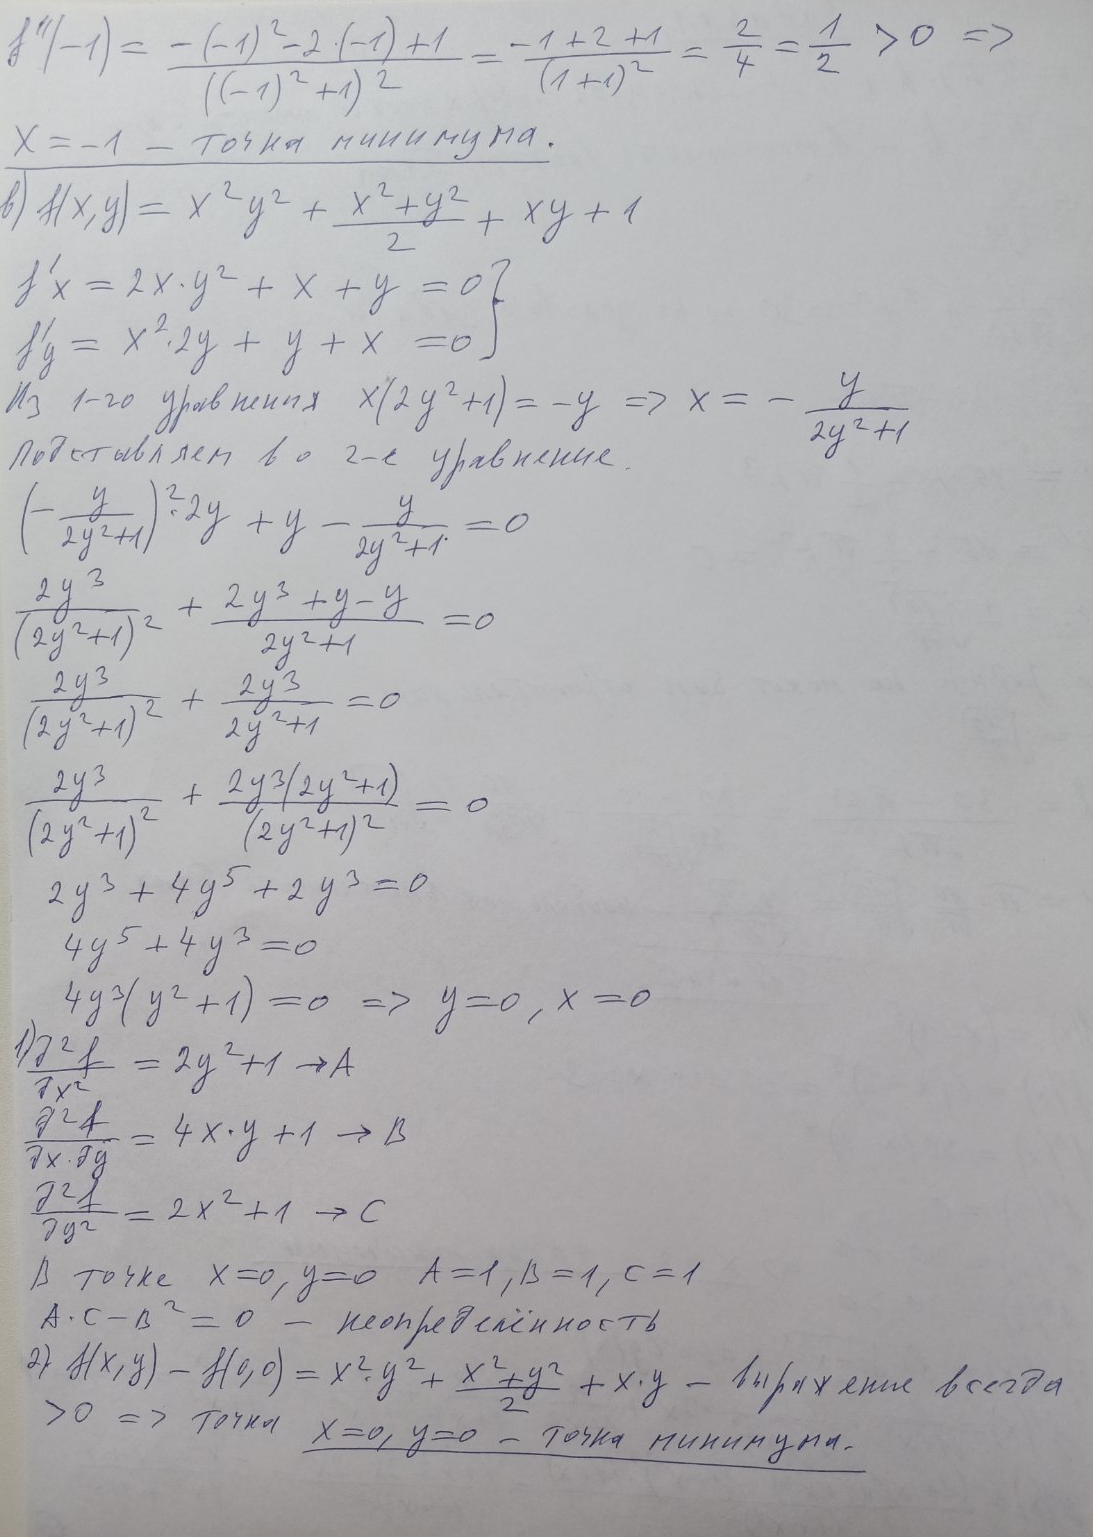 f''(-1) = -(-1)²-2·(-1)+1 / ((-1)²+1)² = -1+2+1 / (1+1)² = 2/4 = 1/2 >0 =>
x=-1 – точка минимума.
в) f(x,y) = x²y² + x²+y² / 2 + xy + 1
f'x = 2x·y² + x + y = 0 }
f'y = x²·2y + y + x = 0
Из 1-го уравнения x(2y²+1) = -y => x = - y / 2y²+1
Подставляем во 2-е уравнение.
(- y / 2y²+1)²·2y + y - y / 2y²+1 = 0
2y³ / (2y²+1)² + 2y³+y-y / 2y²+1 = 0
2y³ / (2y²+1)² + 2y³ / 2y²+1 = 0
2y³ / (2y²+1)² + 2y³(2y²+1) / (2y²+1)² = 0
2y³ + 4y⁵ + 2y³ = 0
4y⁵ + 4y³ = 0
4y³(y²+1) = 0 => y=0, x=0
1) ∂²f / ∂x² = 2y²+1 → A
∂²f / ∂x·∂y = 4x·y+1 → B
∂²f / ∂y² = 2x²+1 → C
В точке x=0, y=0 A=1, B=1, C=1
A·C-B² = 0 – неопределённость
2) f(x,y) – f(0,0) = x²·y² + x²+y² / 2 + x·y – выражение всегда
>0 => точка x=0, y=0 – точка минимума.